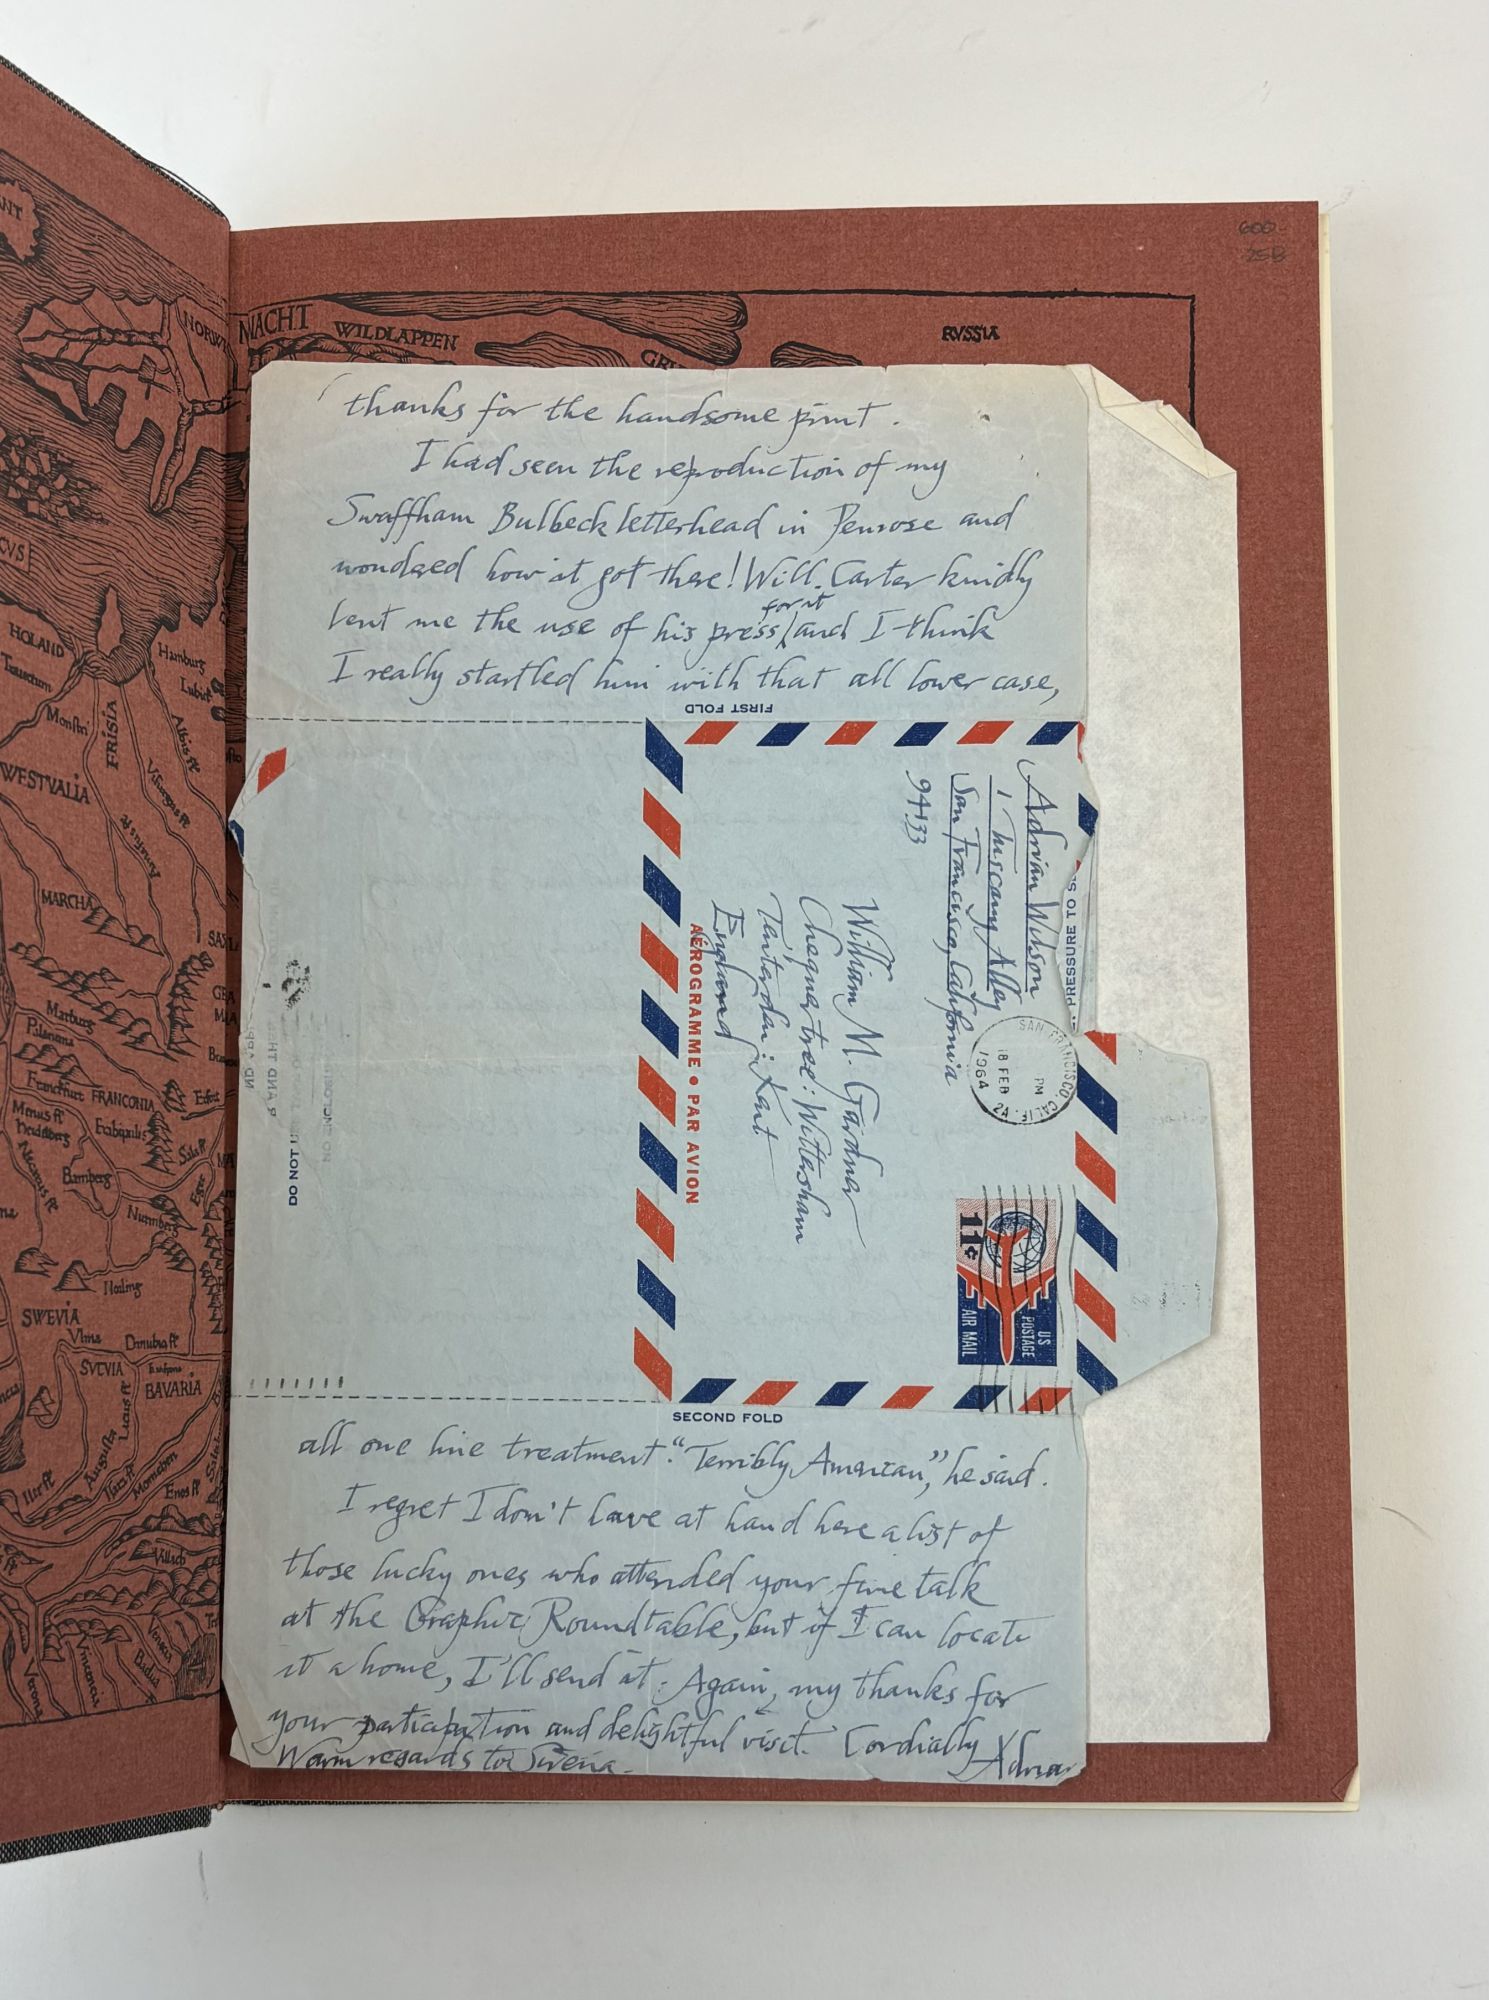 600-
25B
NORW
MACHT
WILDLAPPEN
RVSSIA
thanks for the handsome print.
I had seen the reproduction of my
Swaffham Bulbeck letterhead in Penrose and
wondered how it got there! Will Carter kindly
lent me the use of his press for it and I think
I really startled him with that all lower case,
FIRST FOLD
Adrian Wilson
1 Tuscany Alley
San Francisco, California
94133
PRESSURE TO S
SAN FRANCISCO, CALIF.
PM
18 FEB
1964
2A
US POSTAGE
11¢
AIR MAIL
William M. Gardner
Chequertree: Wittersham
Tenterden: Kent
England
AÉROGRAMME • PAR AVION
DO NOT
SECOND FOLD
all one line treatment. "Terribly American," he said.
I regret I don't have at hand here a list of
those lucky ones who attended your fine talk
at the Graphic Roundtable, but if I can locate
it a home, I'll send it. Again, my thanks for
your participation and delightful visit. Cordially
Warm regards to Adrian
HOLAND
Hamburg
Lubick
Monstri
FRISIA
Albis fl
WESTVALIA
MARCHA
Marburg
Franckfurt
FRANCONIA
Bamberg
Nurmberg
SWEVIA
Vlma
SVEVIA
BAVARIA
Augusta
Villach
Verona